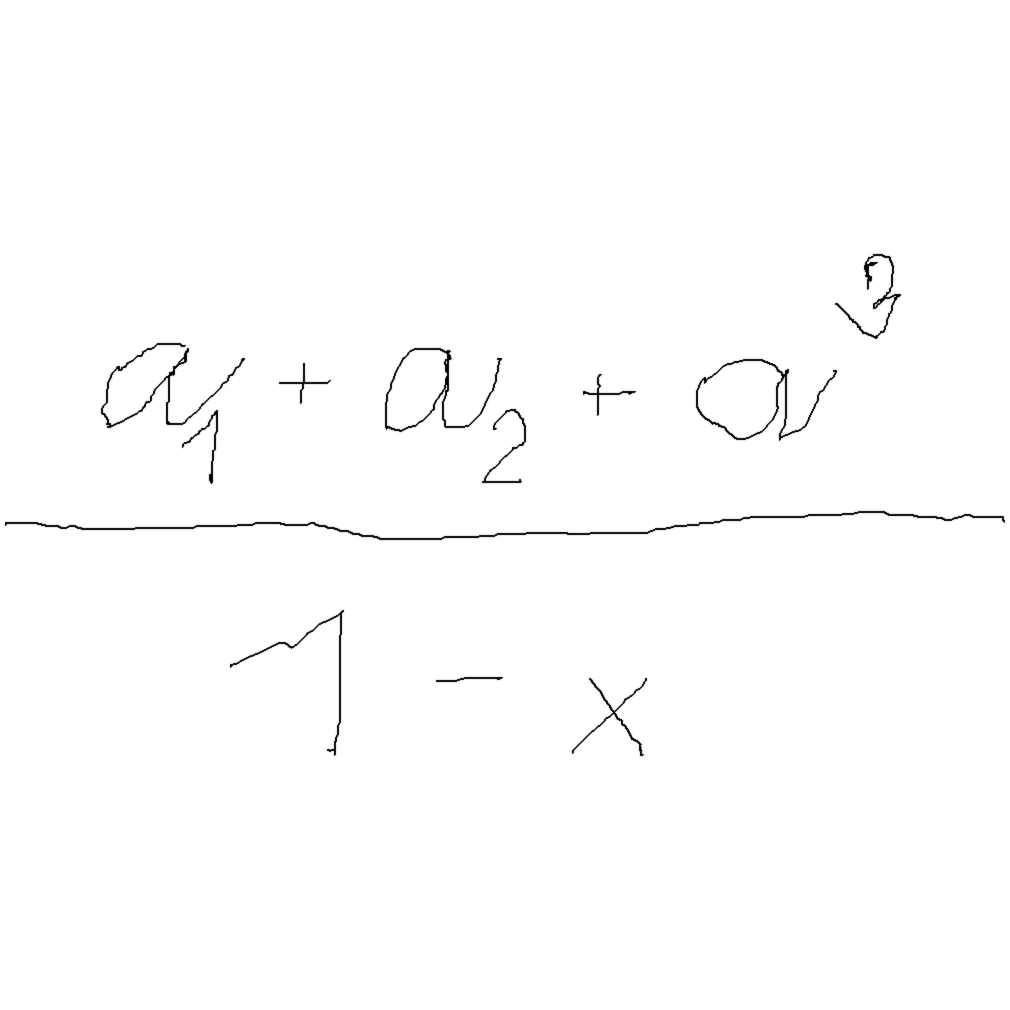 a₁ + a₂ + a³
1 - x